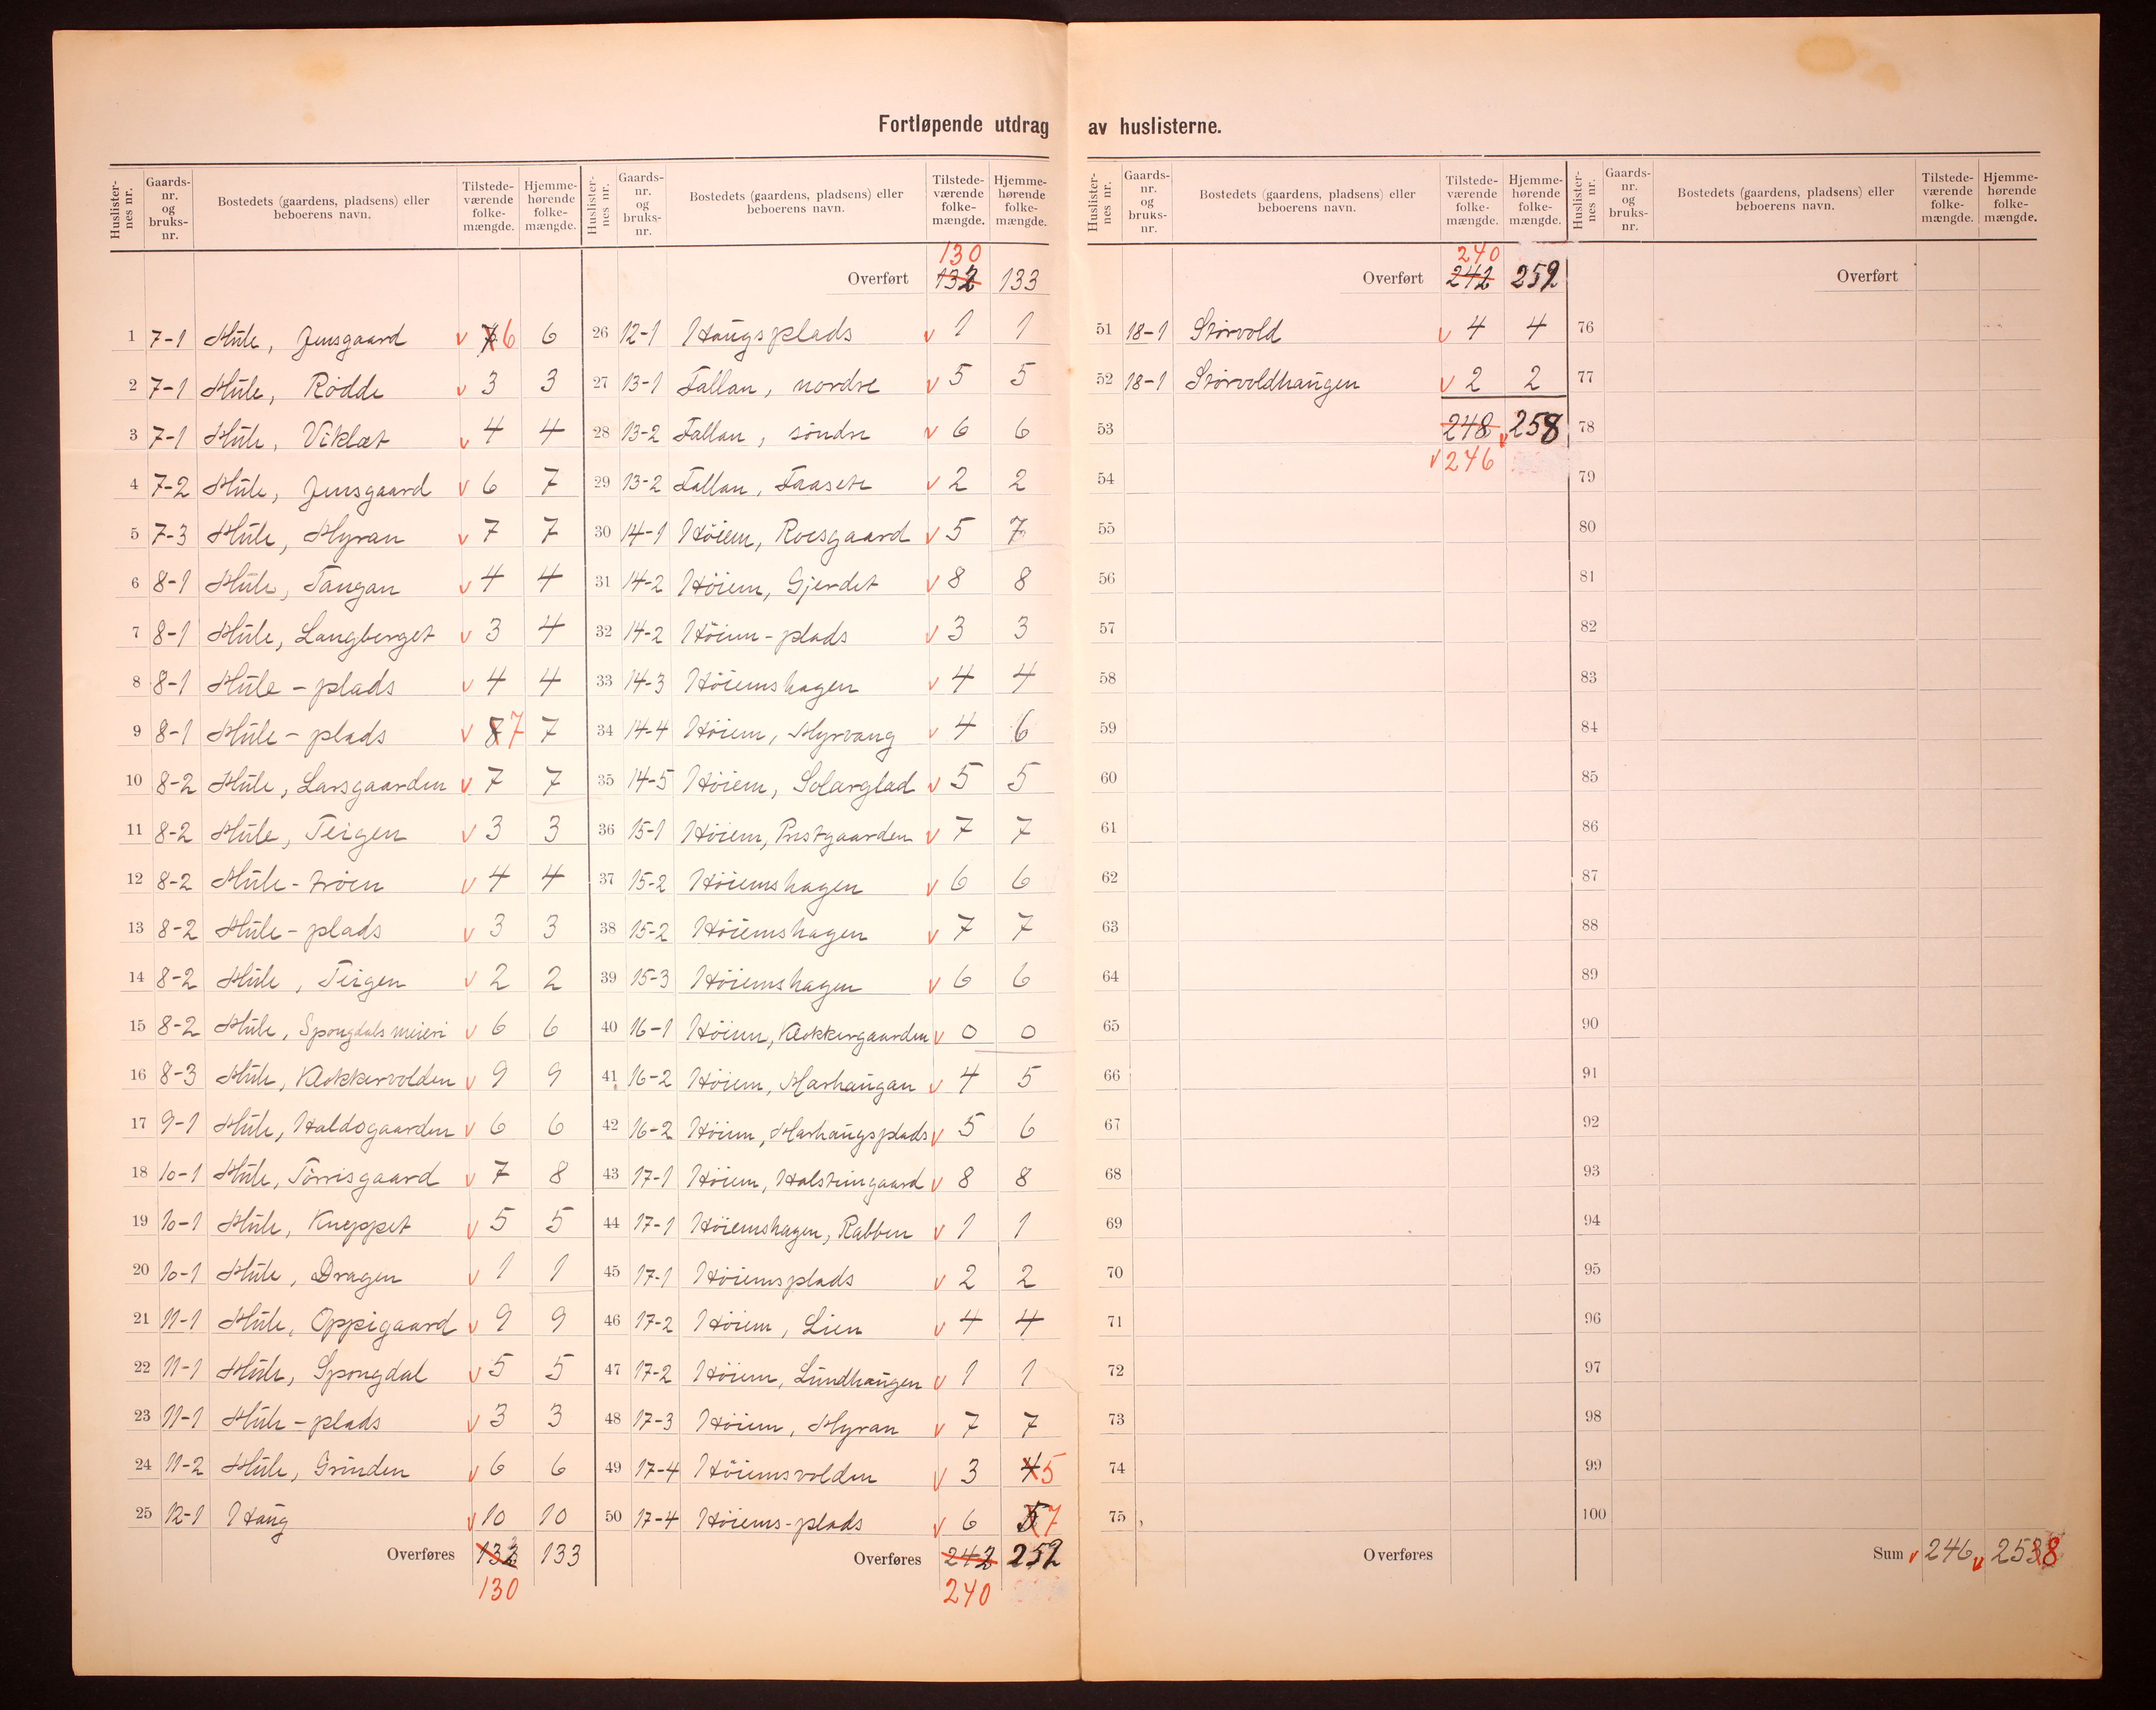 Fortløpende utdrag av huslisterne.
Huslisternes nr. Gaards-nr. og bruks-nr. Bostedets (gaardens, pladsens) eller beboerens navn. Tilstedeværende folkemængde. Hjemmehørende folkemængde.
1 7-1 Mule, Jensgaard v 7 6 6
2 7-1 Mule, Rødde v 3 3
3 7-1 Mule, Viklæt v 4 4
4 7-2 Mule, Jensgaard v 6 7
5 7-3 Mule, Myran v 7 7
6 8-1 Mule, Tangan v 4 4
7 8-1 Mule, Langberget v 3 4
8 8-1 Mule - plads v 4 4
9 8-1 Mule - plads v 8 7 7
10 8-2 Mule, Larsgaarden v 7 7
11 8-2 Mule, Teigen v 3 3
12 8-2 Mule - trøen v 4 4
13 8-2 Mule - plads v 3 3
14 8-2 Mule, Teigen v 2 2
15 8-2 Mule, Spongdals meieri v 6 6
16 8-3 Mule, Klokkervolden v 9 9
17 9-1 Mule, Haldogaarden v 6 6
18 10-1 Mule, Törrisgaard v 7 8
19 10-1 Mule, Kneppet v 5 5
20 10-1 Mule, Dragen v 1 1
21 11-1 Mule, Oppigaard v 9 9
22 11-1 Mule, Spongdal v 5 5
23 11-1 Mule - plads v 3 3
24 11-2 Mule, Grinden v 6 6
25 12-1 Haug v 10 10
Overføres 132 133
130
Huslisternes nr. Gaards-nr. og bruks-nr. Bostedets (gaardens, pladsens) eller beboerens navn. Tilstedeværende folkemængde. Hjemmehørende folkemængde.
130
Overført 132 133
26 12-1 Haugsplads v 1 1
27 13-1 Fallan, nordre v 5 5
28 13-2 Fallan, søndre v 6 6
29 13-2 Fallan, Faasete v 2 2
30 14-1 Høiem, Roesgaard v 5 7
31 14-2 Høiem, Gjerdet v 8 8
32 14-2 Høiem - plads v 3 3
33 14-3 Høiemshagen v 4 4
34 14-4 Høiem, Myrvang v 4 6
35 14-5 Høiem, Solarglad v 5 5
36 15-1 Høiem, Prestgaarden v 7 7
37 15-2 Høiemshagen v 6 6
38 15-2 Høiemshagen v 7 7
39 15-3 Høiemshagen v 6 6
40 16-1 Høiem, Klokkergaarden v 0 0
41 16-2 Høiem, Marhaugan v 4 5
42 16-2 Høiem, Marhaugsplads v 5 6
43 17-1 Høiem, Holsteingaard v 8 8
44 17-1 Høiemshagen, Rabben v 1 1
45 17-1 Høiemsplads v 2 2
46 17-2 Høiem, Lien v 4 4
47 17-2 Høiem, Lundhaugen v 1 1
48 17-3 Høiem, Myran v 7 7
49 17-4 Høiemsvolden v 3 4 5
50 17-4 Høiems-plads v 6 5 7
Overføres 242 252
240
Huslisternes nr. Gaards-nr. og bruks-nr. Bostedets (gaardens, pladsens) eller beboerens navn. Tilstedeværende folkemængde. Hjemmehørende folkemængde.
240
Overført 242 252
51 18-1 Størvold v 4 4
52 18-1 Størvoldhaugen v 2 2
53 248 v 258
54 v 246
55
56
57
58
59
60
61
62
63
64
65
66
67
68
69
70
71
72
73
74
75
Overføres
Huslisternes nr. Gaards-nr. og bruks-nr. Bostedets (gaardens, pladsens) eller beboerens navn. Tilstedeværende folkemængde. Hjemmehørende folkemængde.
Overført
76
77
78
79
80
81
82
83
84
85
86
87
88
89
90
91
92
93
94
95
96
97
98
99
100
Sum v 246 v 2538